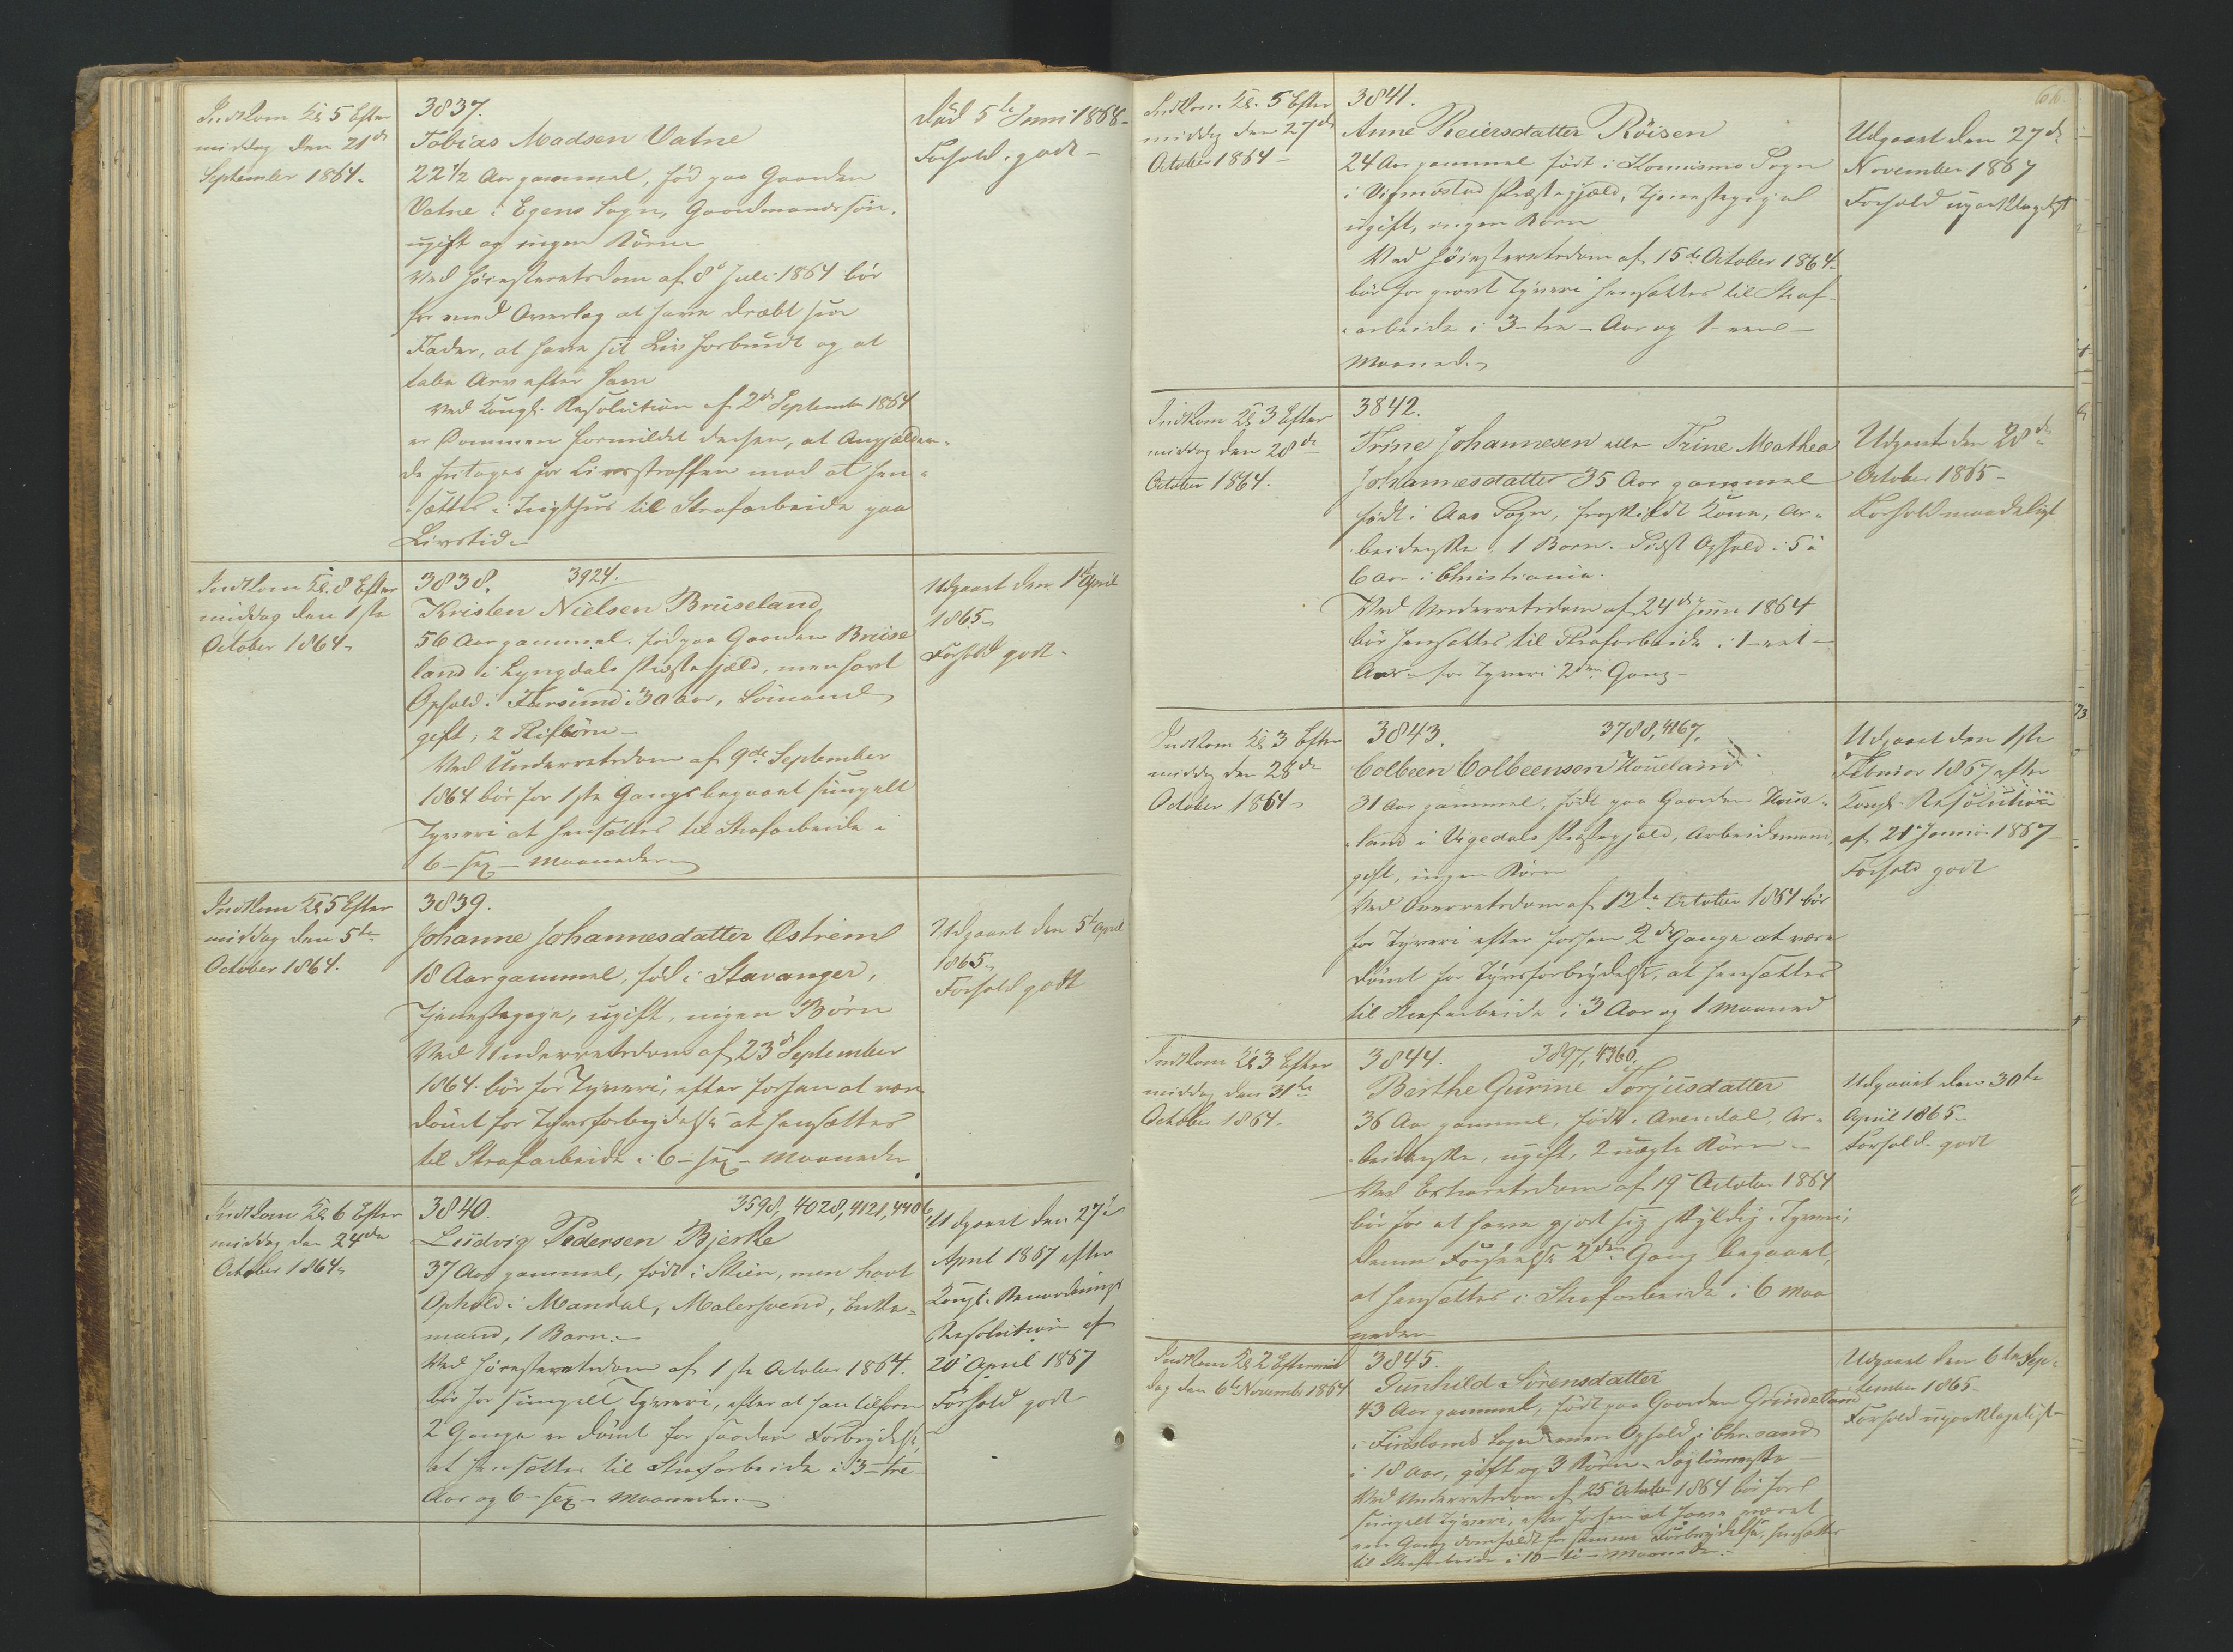 Indkom Kl 5 Efter
middag den 21de
September 1864.
3837.
Tobias Madsen Vatne
22 1/2 Aar gammel, fød paa Gaarden
Vatne i Egens Sogn, Gaardmandssøn.
ugift og ingen Børn
Ved Høiesteretsdom af 8de Juli 1864 bør
for med Overlæg at have dræbt sin
Fader, at have sit Liv forbrudt og at
tabe Arv efter ham
Ved Kongl. Resolution af 2de September 1864
er Dommen formildet derhen, at Angjælden-
de fritages for Livsstraffen mod at hen-
sættes i Tugthus til Strafarbeide paa
Livstid.
Død 5te Juni 1868-
Forhold. godt-
Indkom Kl. 8 Efter
middag den 1ste
October 1864.
3838. 3924.
Kristen Nielsen Bruseland
56 Aar gammel. fød paa Gaarden Bruse
land i Lyngdals Præstegjæld, men havt
Ophold i Farsund i 30 Aar, Sømand
gift, 2 Stifbørn-
Ved Underretsdom af 9de September
1864 bør for 1ste Gangs begaaet simpelt
Tyveri at hensættes til Strafarbeide i
6 - sex - Maaneder
Udgaaet den 1ste April
1865.
Forhold godt.
Indkom Kl 5 Efter
middag den 5te
October 1864.
3839.
Johanne Johannesdatter Østrem
18 Aar gammel, fød i Stavanger,
Tjenestepige, ugift, ingen Børn
Ved Underretsdom af 23de September
1864. bør for Tyveri, efter forhen at være
dømt for Tyvsforbrydelse at hensættes
til Strafarbeide i 6 - sex - Maaneder
Udgaaet den 5te April
1865.
Forhold godt
Indkom Kl 6 Efter
middag den 24de
October 1864.
3840. 3598, 4028, 4121, 4406,
Ludvig Pedersen Bjerke
37 Aar gammel, født i Skien, men havt
Ophold i Mandal, Malersvend, Enke-
mand, 1 Barn.
Ved Høiesteretsdom af 1ste October 1864.
bør for simpelt Tyveri, efter at han tilforn
2 Gange er dømt for saadan Forbrydelse,
at hensættes til Strafarbeide i 3 - tre
Aar og 6 - sex - Maaneder.
Udgaaet den 27de
April 1867 efter
Kongl. Benaadnings
Resolution af
20de April 1867
Forhold godt
66.
Indkom Kl. 5 Efter
middag den 27de
October 1864-
3841.
Anne Reiersdatter Röisen
24 Aar gammel født i Konnismo Sogn
i Vigmostad Præstegjæld, Tjenestepige
ugift, ingen Børn
Ved Høiesteretsdom af 15de October 1864.
bør for grovt Tyveri hensættes til Straf-
arbeide i 3 - tre - Aar og 1 - een -
Maaned.
Udgaaet den 27de
November 1867
Forhold upaaklageligt
Indkom Kl 3 Efter
middag den 28de
October 1864.
3842.
Trine Johannesen eller Trine Mathea
Johannesdatter 35 Aar gammel
født i Aas Sogn, fraskildt Kone, Ar-
beiderske. 1 Barn. Sidst Ophold i 5 à
6 Aar i Christiania.
Ved Underretsdom af 24de Juni 1864
bør hensættes til Strafarbeide i 1 - eet -
Aar - for Tyveri 2den Gang-
Udgaaet den 28de
October 1865-
Forhold maadeligt
Indkom Kl 3 Efter
middag den 28de
October 1864.
3843. 3788, 4167.
Colbeen Colbeensen Houeland
31 Aar gammel, født paa Gaarden Houe-
land i Vigedals Præstegjæld, Arbeidsmand,
gift, ingen Børn
Ved Overretsdom af 12te October 1864 bør
for Tyveri efter forhen 2de Gange at være
dømt for Tyvsforbrydelse, at hensættes
til Strafarbeide i 3 Aar og 1 Maaned
Udgaaet den 1ste
Februar 1867 efter
Kongl. Resolution
af 21de Januar 1867
Forhold godt
Indkom Kl 3 Efter
middag den 31te
October 1864.
3844. 3897, 4360.
Berthe Gurine Torjusdatter
36 Aar gammel, født i Arendal, Ar-
beiderske, ugift, 2 uægte Børn-
Ved Extraretsdom af 19de October 1864
bør for at have gjort sig skyldig i Tyveri,
denne Forseelse 2den Gang begaaet,
at hensættes i Strafarbeide i 6 Maa
neder
Udgaaet den 30te
April 1865-
Forhold. godt
Indkom Kl 2 Eftermid
dag den 6te Novembr 1864
3845.
Gunhild Sørensdatter
43 Aar gammel, født paa Gaarden Grindeland
i Findslands Sogn men Ophold i Chr.sand
i 18 Aar, gift og 3 Børn. Daglønnerske-
Ved Underretsdom af 25de October 1864 bør for
simpelt Tyveri, efter forhen at have været
een Gang domfældt for samme Forbrydelse, hensættes
til Strafarbeide i 10 - ti - Maaneder.
Udgaaet den 6te Sep-
tember 1865-
Forhold upaaklageligt-